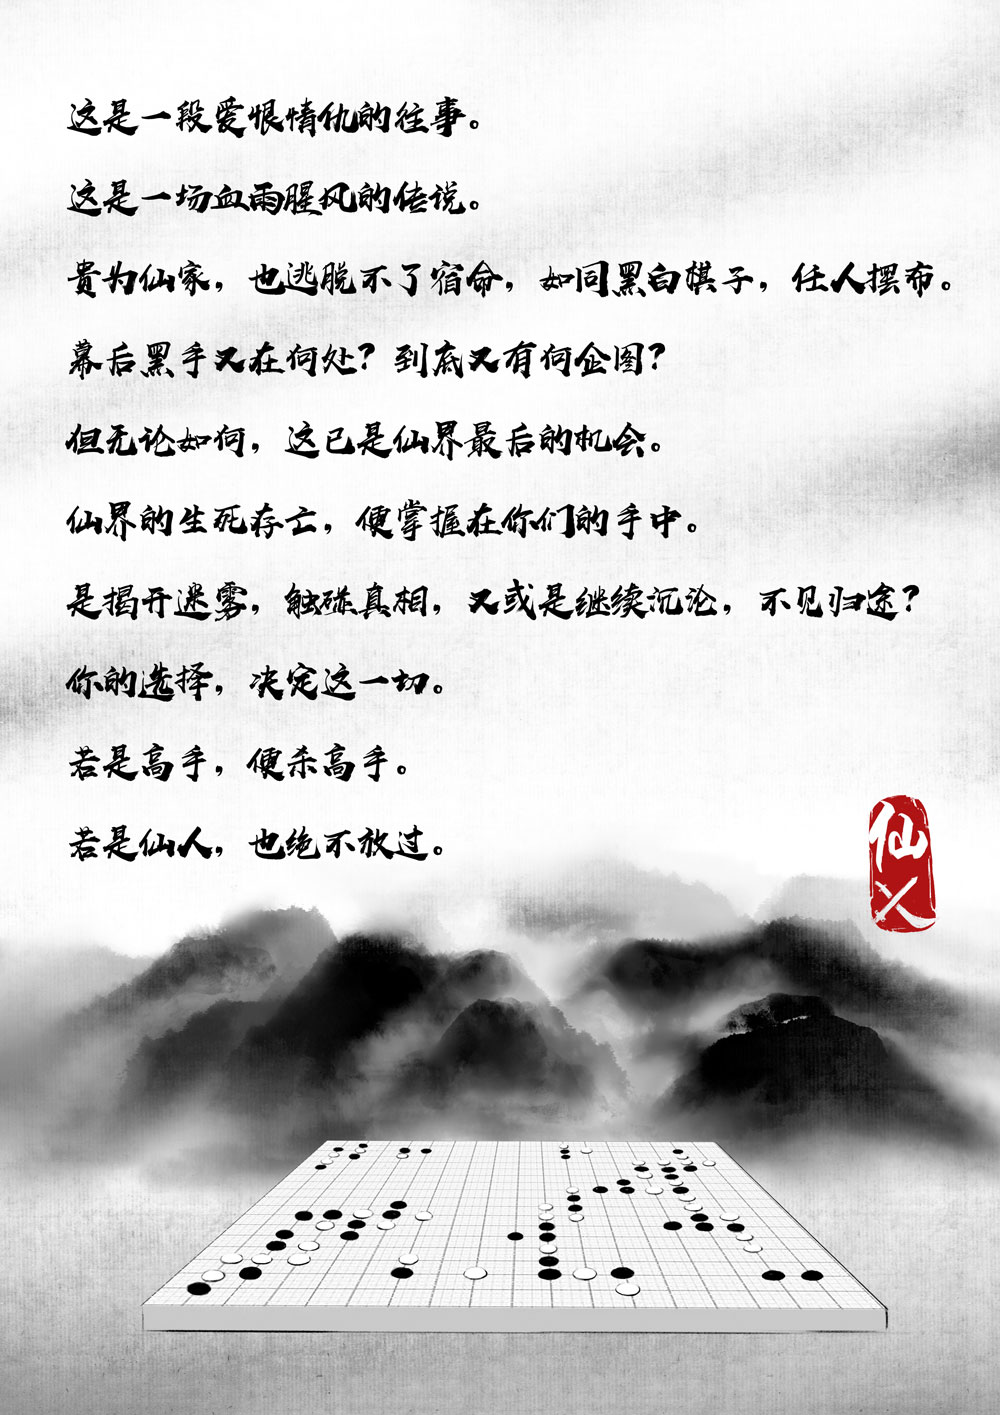 这是一段爱恨情仇的往事。
这是一场血雨腥风的传说。
贵为仙家，也逃脱不了宿命，如同黑白棋子，任人摆布。
幕后黑手又在何处？到底又有何企图？
但无论如何，这已是仙界最后的机会。
仙界的生死存亡，便掌握在你们的手中。
是揭开迷雾，触碰真相，又或是继续沉沦，不见归途？
你的选择，决定这一切。
若是高手，便杀高手。
若是仙人，也绝不放过。
仙人